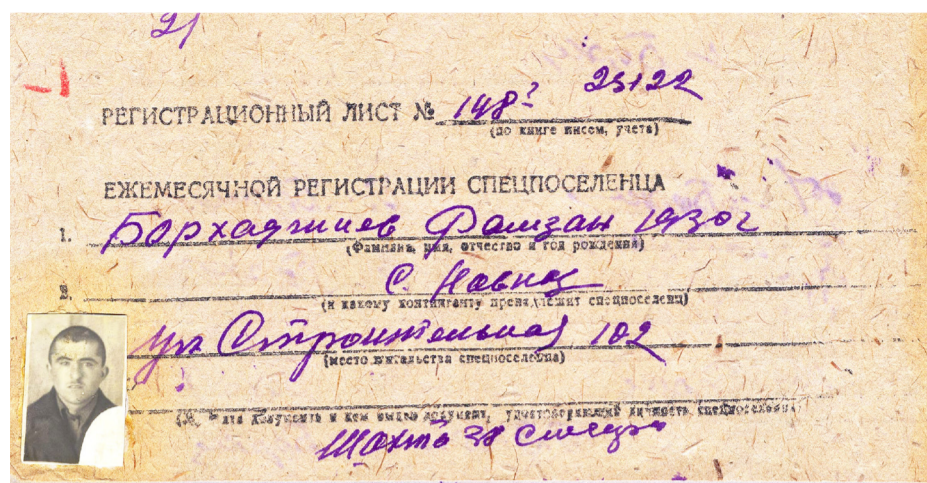 21
23122
РЕГИСТРАЦИОННЫЙ ЛИСТ № 148
(по книге писем, учета)
ЕЖЕМЕСЯЧНОЙ РЕГИСТРАЦИИ СПЕЦПОСЕЛЕНЦА
1. Борхаджиев Рамзан 1930г
(Фамилия, имя, отчество и год рождения)
2.
(к какому контингенту принадлежит спецпоселенец)
ул Строительная 102
(место жительства спецпоселенца)
(№, дата документа и кем выдан документ, удостоверяющий личность спецпоселенца)
Шахта